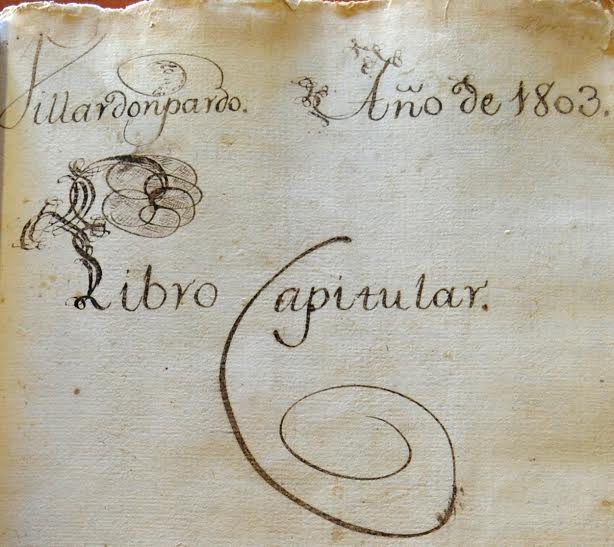 Villardonpardo. Año de 1803.
Libro Capitular.